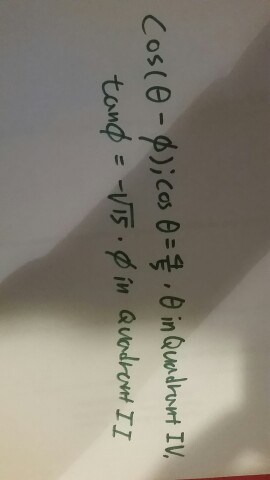 cos(θ - ϕ); cos θ = 4/5 . θ in Quadrant IV,
tanϕ = -√15 . ϕ in Quadrant II